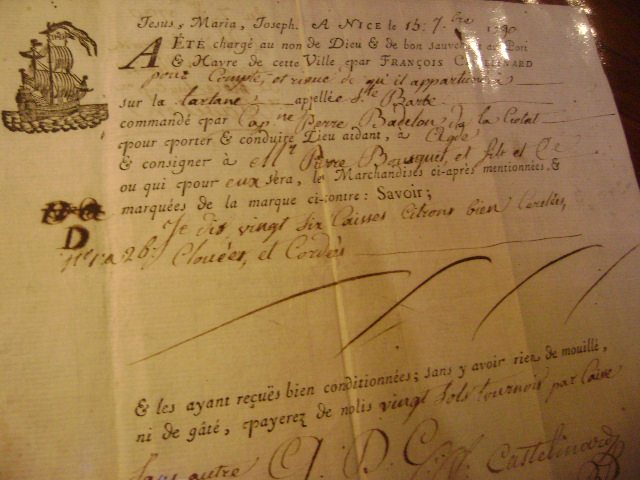 Jesus, Maria, Joseph. A NICE le 15. 7.bre 1790
A ÉTÉ chargé au nom de Dieu & de bon sauvement au Port
& Havre de cette Ville par FRANÇOIS CASTELINARD
pour Compte, et risque de qui il appartiendra
sur la tartane appellée Ste Barbe
commandé par Capne Pierre Badelon de la Ciotat
pour porter & conduire Dieu aidant, à Agde
& consigner à Mr Pierre Bousquet, et fils et Ce
ou qui pour eux sera, les Marchandises ci-après mentionnées &
marquées de la marque ci-contre: Savoir;
D
Je dis vingt six Caisses citrons bien Cerclées,
Nº 1 a 26: Clouées, et Cordées
& les ayant reçuës bien conditionnées; sans y avoir rien de mouillé,
ni de gâté, payerez de nolis vingt sols tournois par Caisse
sans autre A. D. C. Castelinard